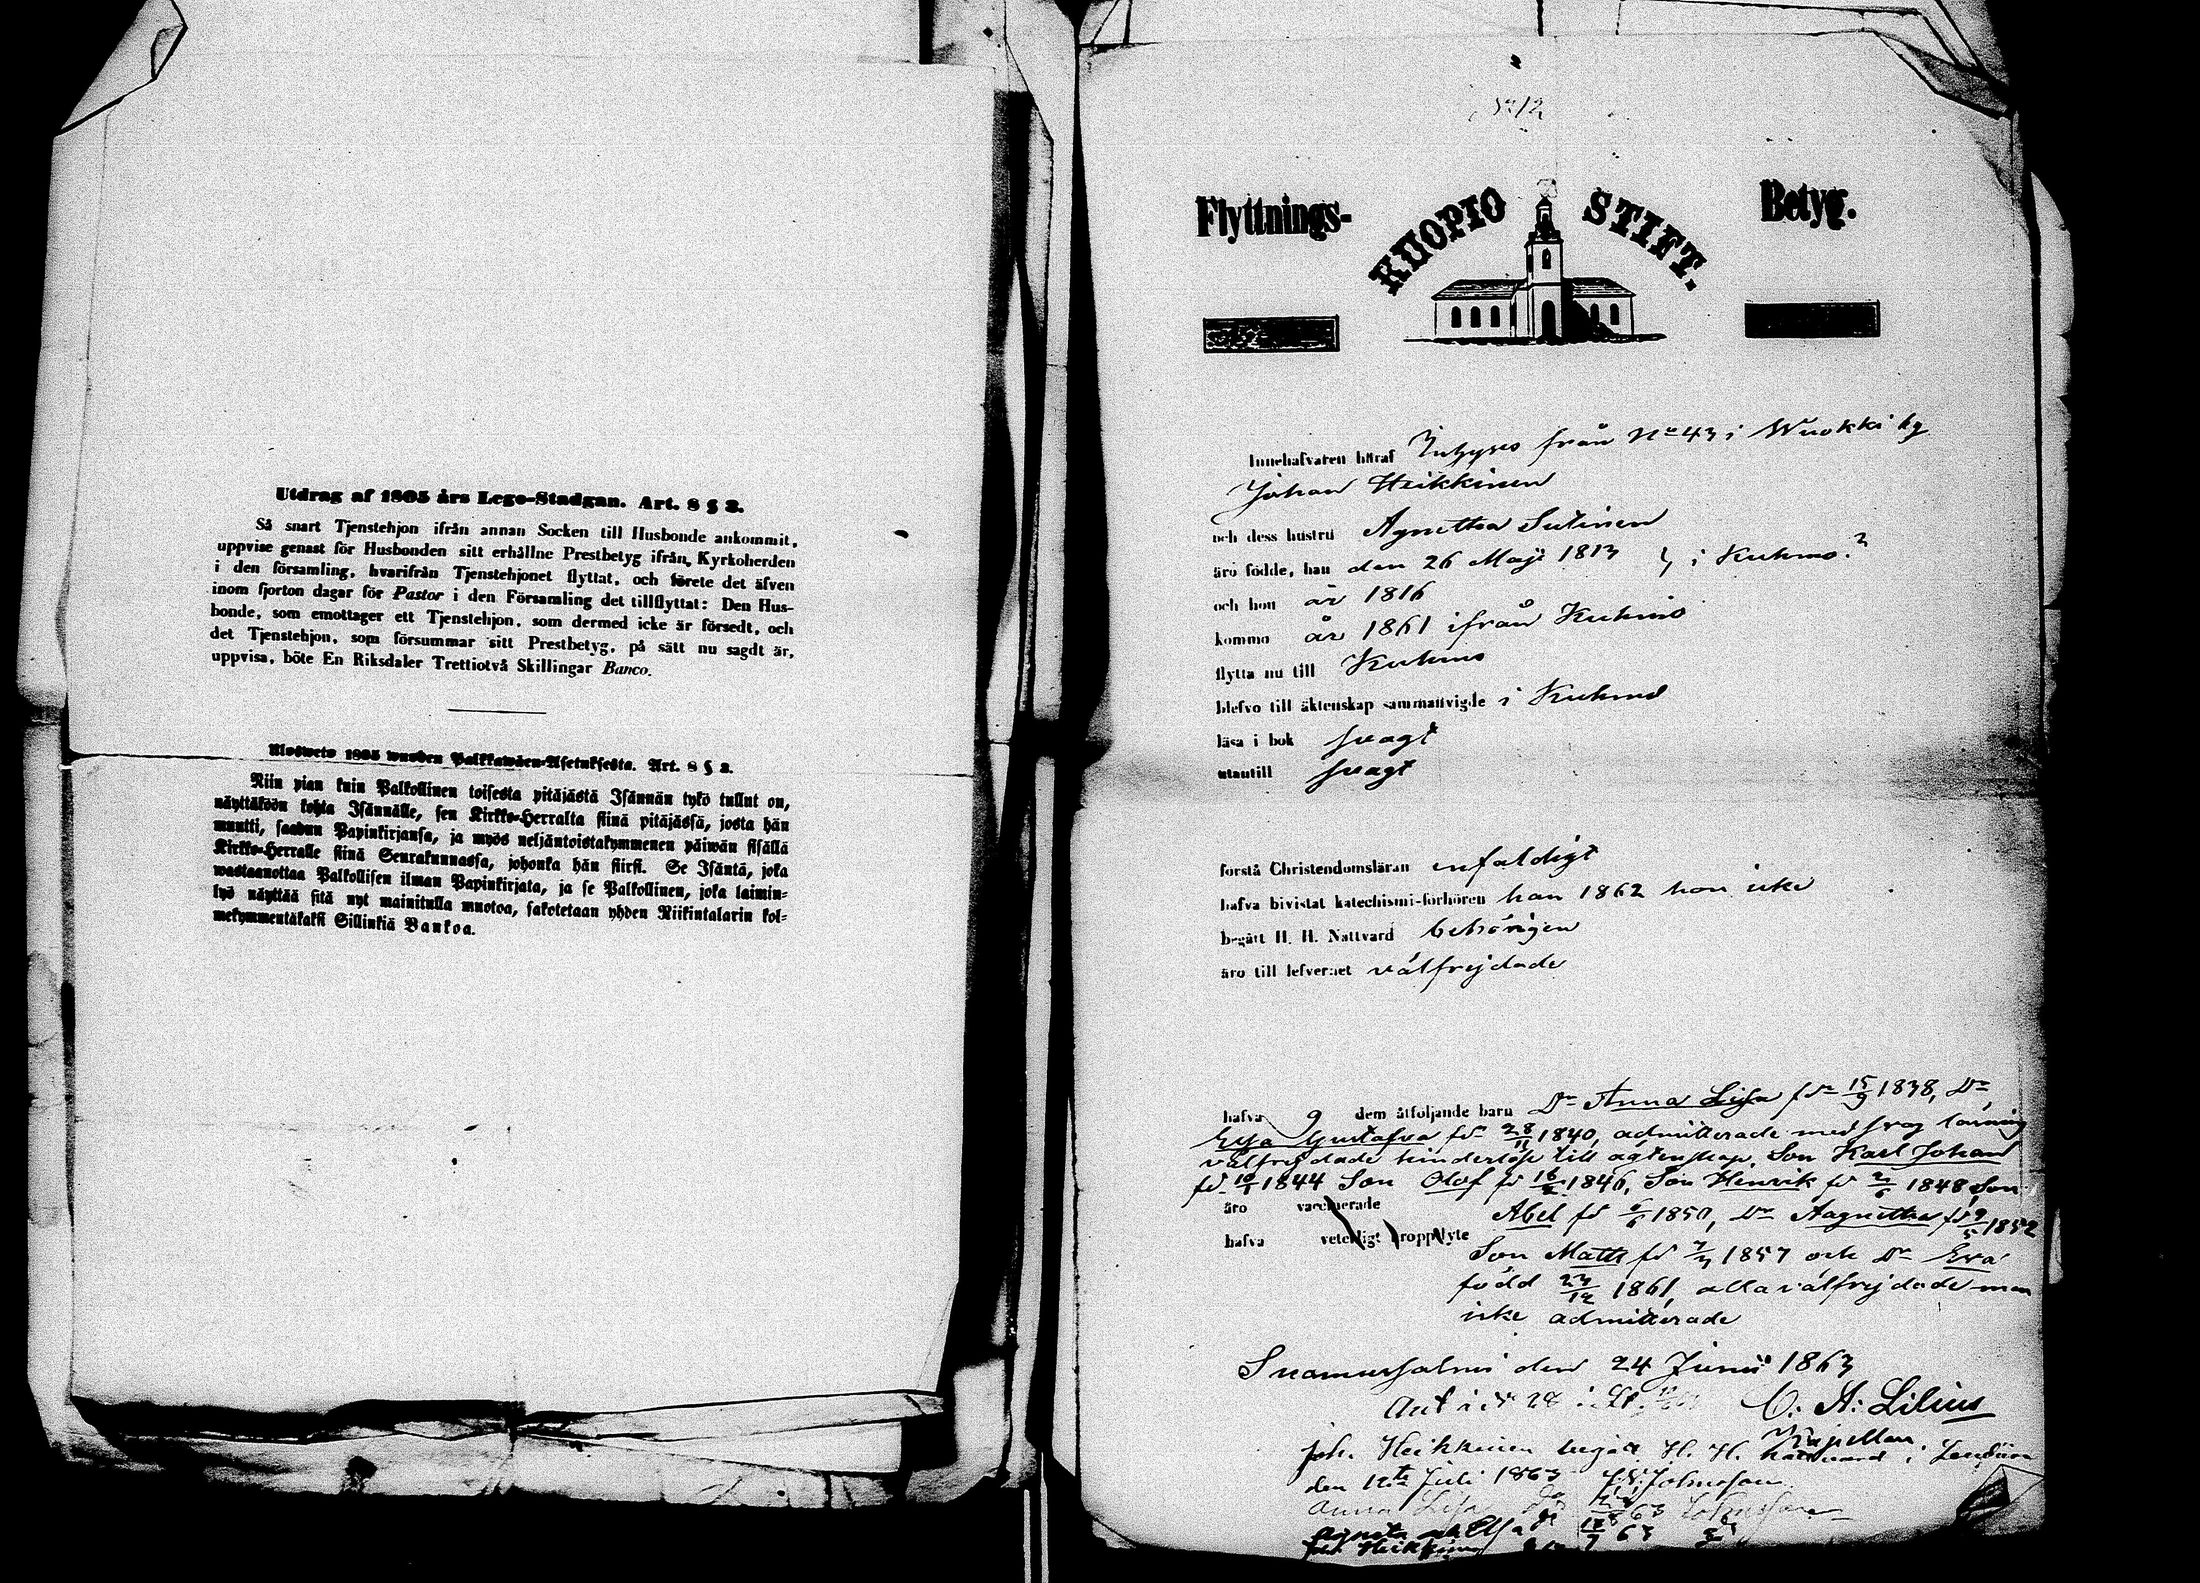 Utdrag af 1805 års Lego-Stadgan. Art. 8 § 2.
Så snart Tjenstehjon ifrån annan Socken till Husbonde ankommit,
uppvise genast för Husbonden sitt erhållne Prestbetyg ifrån Kyrkoherden
i den församling, hvarifrån Tjenstehjonet flyttat, och förete det äfven
inom fjorton dagar för Pastor i den Församling det tillflyttat: Den Hus-
bonde, som emottager ett Tjenstehjon, som dermed icke är försedt, och
det Tjenstehjon, som försummar sitt Prestbetyg, på sätt nu sagdt är,
uppvisa, böte En Riksdaler Trettiotvå Skillingar Banco.
Ulosweto 1805 wuoden Palkkawäen-Asetuksesta. Art. 8 § 2.
Niin pian kuin Palkollinen toisesta pitäjästä Isännän tykö tullut on,
näyttäköön kohta Isännälle, sen Kirkko-Herralta siinä pitäjässä, josta hän
muutti, saadun Papinkirjansa, ja myös neljäntoistakymmenen päiwän sisällä
Kirkko-Herralle siinä Seurakunnassa, johonka hän siirsi. Se Isäntä, joka
wastaanottaa Palkollisen ilman Papinkirjata, ja se Palkollinen, joka laimin-
lyö näyttää sitä nyt mainitulla muotoa, sakotetaan yhden Riikintalarin kol-
mekymmentäkaksi Sillinkiä Bankoa.
Nº 12
Flyttnings- KUOPIO STIFT. Betyg.
Innehafvaren häraf från Nº 43 i Wuokki by
Johan Heikkinen
och dess hustru Agnetha Sutinen
äro födde, han den 26 Maji 1813 } i Kuhmo.
och hon år 1816
komma år 1861 ifrån Kuhmo
flytta nu till Kuhmo
blefvo till äktenskap sammanvigde i Kuhmo
läsa i bok svagt
utantill svagt
förstå Christendomsläran enfaldigt
hafva bivistat katechismi-förhören han 1862 hon icke
begått H. H. Nattvard behörigen
äro till lefvernet välfrejdade
hafva 9 dem åtföljande barn Dr Anna Lisa fdd 15/9 1838, Dr
Elsa Gustafva fdd 28/11 1840, admitterade med svag läsning
välfrejdade hinderlöse till ägtenskap, Son Karl Johan
fd 10/1 1844 Son Olof fd 1846, Son Henrik fd 2/6 1848, Son
äro vaccinerade Abel fd 1850, Dr Aagnetha fd 9/5 1852
hafva veterligt kropplyte
Son Matts fd 1857 och Dr Eva
född 23/12 1861, alla välfrejdade men
icke admitterade
Suomussalmi den 24 Junii 1863
O. A. Lilius
Kapellan.
Joh. Heikkinen begått H. H. Nattvard i
den 12te Juli 1863 Johnsson
Anna Lisa do 63 Johnsson
Agneta och Elsa do 12/7 63
Joh. Heikkinen